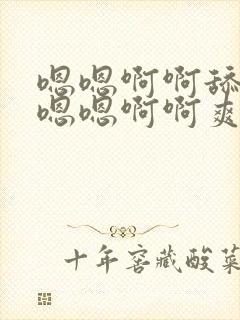 嗯嗯啊啊舔
嗯嗯啊啊爽
十年窖藏酸菜